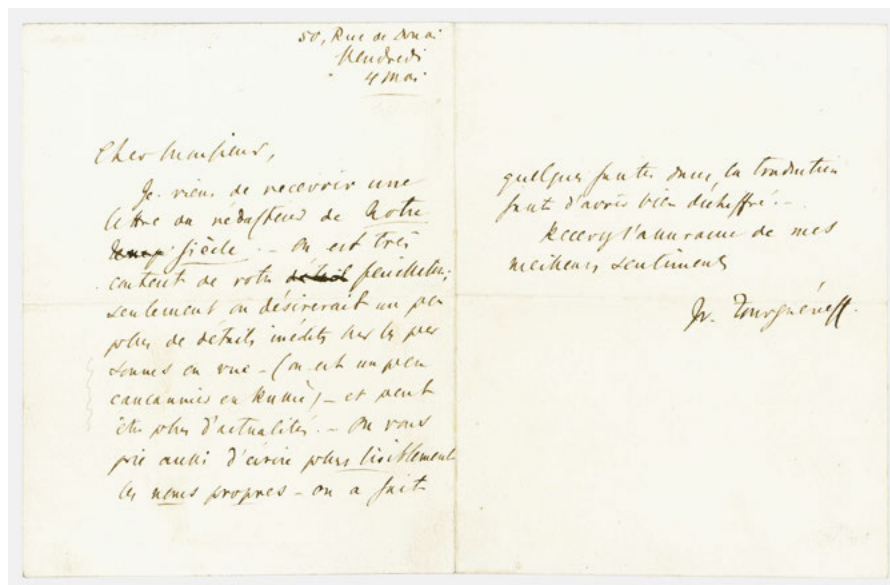 50, Rue de Douai
Vendredi
4 Mai
Cher Monsieur,
Je viens de recevoir une
lettre du rédacteur de Notre
Temps Siècle. – On est très
content de votre détail feuilleton;
seulement on désirerait un peu
plus de détails inédits sur les per
sonnes en vue – (on est un peu
cancannier en Russie) – et peut
être plus d'actualités. – On vous
prie aussi d'écrire plus lisiblement
les noms propres – on a fait
quelques fautes dans la traduction
faute d'avoir bien déchiffré. –
Recevez l'assurance de mes
meilleurs sentiments
Iv. Tourguéneff.